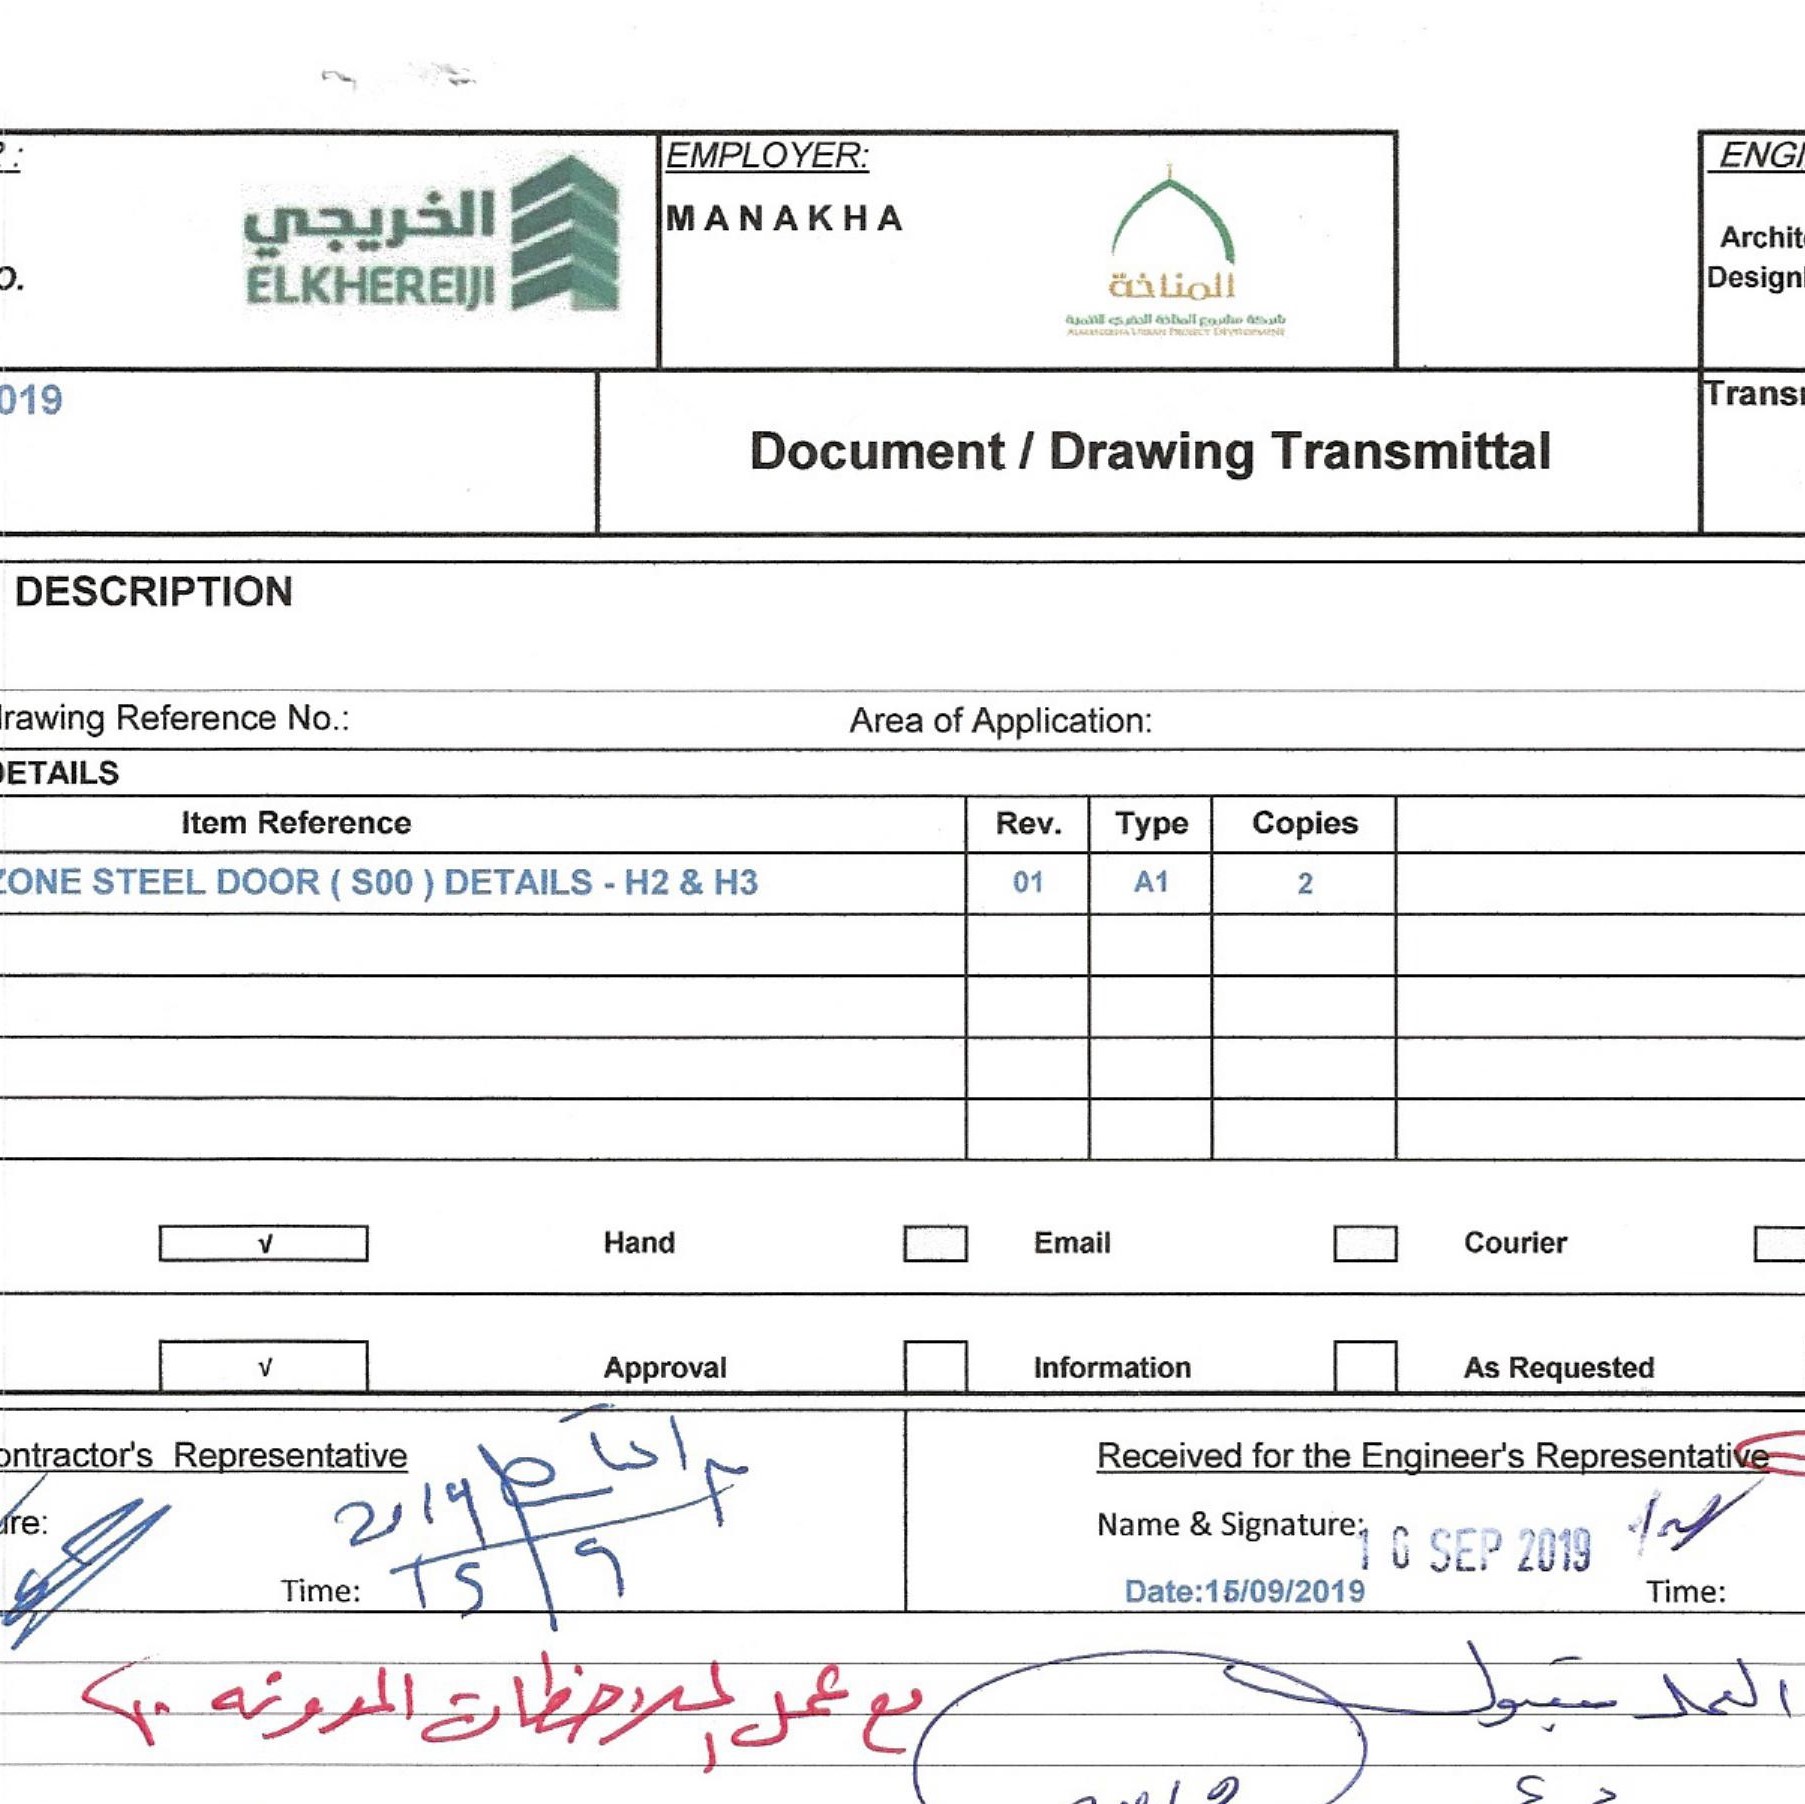 EMPLOYER:
ENGI
الخريجي
ELKHEREIJI
MANAKHA
المناخة
شركة مشروع المناخة الحضري للتنمية
ALMANAKHA URBAN PROJECT DEVELOPMENT
O.
Archite
Design
019
Document / Drawing Transmittal
Transm
DESCRIPTION
rawing Reference No.:
Area of Application:
DETAILS
Item Reference Rev. Type Copies
ZONE STEEL DOOR ( S00 ) DETAILS - H2 & H3 01 A1 2
√ Hand Email Courier
√ Approval Information As Requested
ontractor's Representative
Received for the Engineer's Representative
2019
ure:
Name & Signature:
16 SEP 2019
Time:
9
Date:15/09/2019
Time:
العمل مقبول
مع عمل الملاحظات المدونه